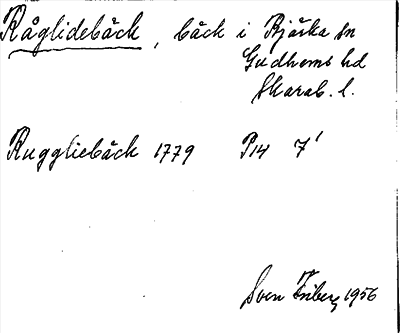 Råglidebäck, bäck i Bjärka sn
Gudhems hd
Skarab. l.
Ruggliebäck 1779 P14 7¹
Sven Friberg 1956